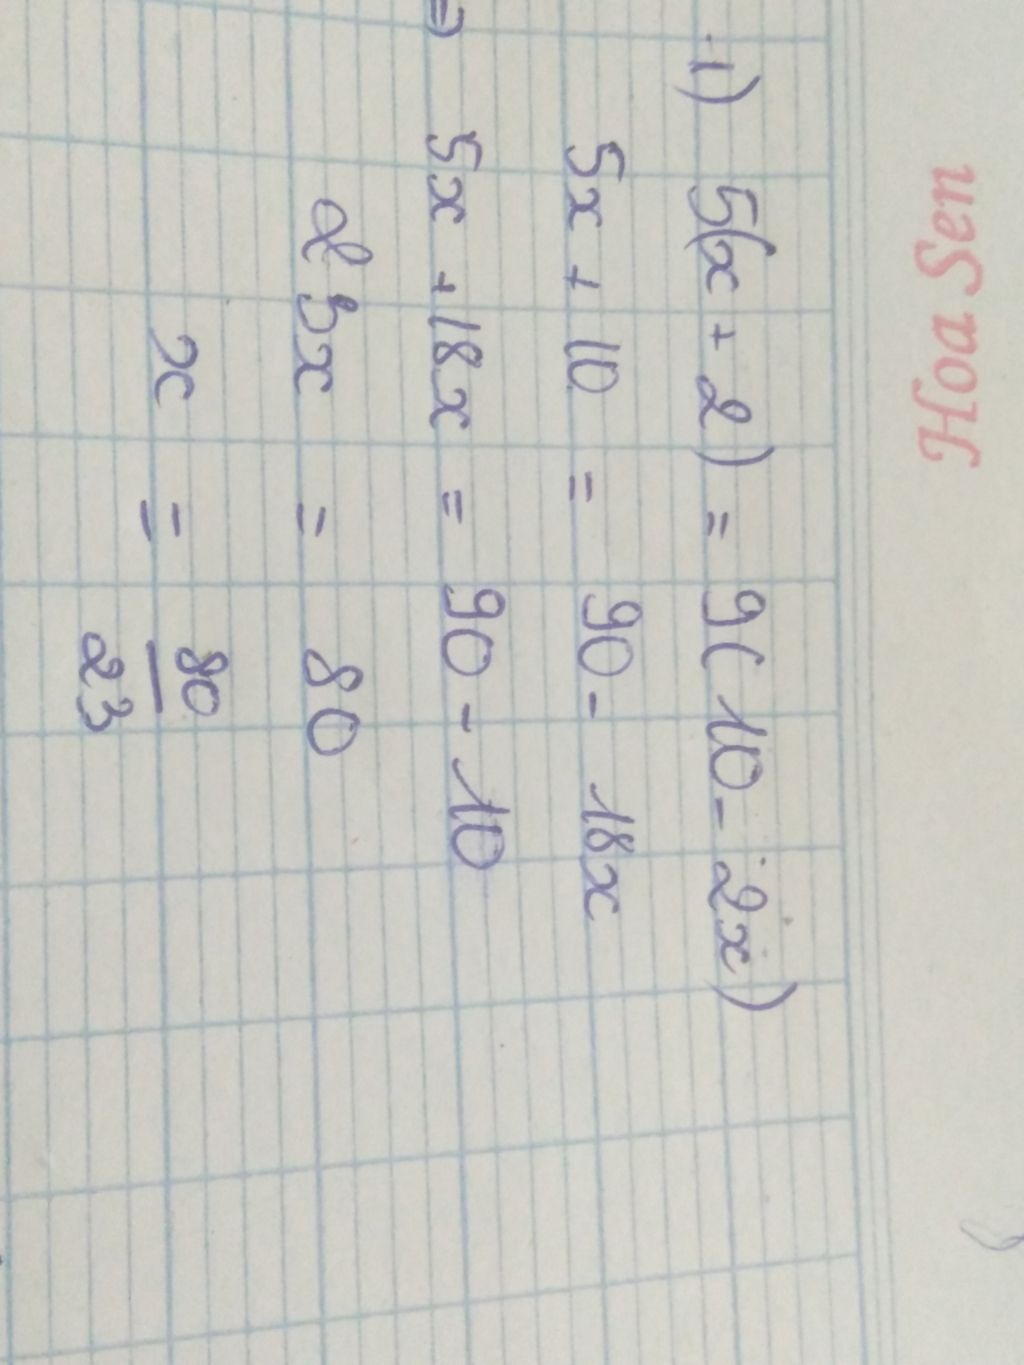 Hoa Sen
1) 5(x + 2) = 9(10 - 2x)
5x + 10 = 90 - 18x
=> 5x + 18x = 90 - 10
23x = 80
x = 80/23